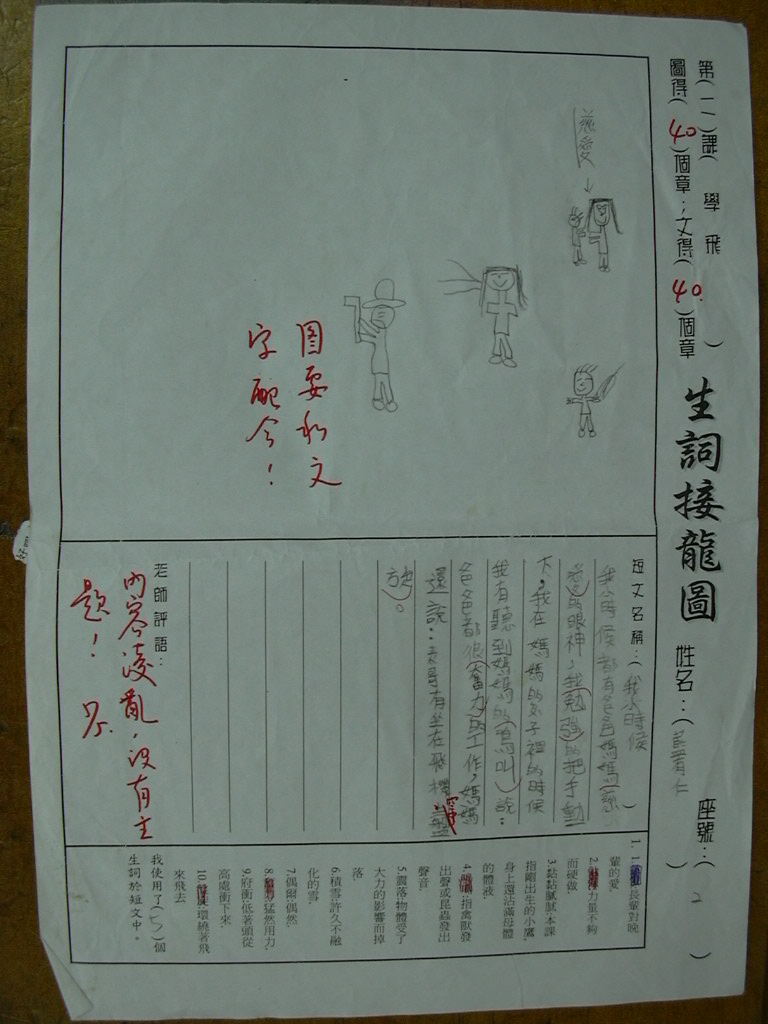 第(一)課(學飛)
生詞接龍圖
姓名：(
座號：(2)
圖得(40)個章；文得(40)個章
慈愛
↓
圖要和文
字配合！
短文名稱：(我小時候)
我小時候都有爸爸媽媽(慈
愛)的眼神，我(勉強)的把手動
下，我在媽媽的肚子裡的時候
我有聽到媽媽的(鳴叫)說：
爸爸都很(奮力)的工作，媽媽
還說：
旋)。
老師評語：
內容凌亂，沒有主
題！
1.
長輩對晚
輩的愛.
2.
力量不夠
而硬做.
3.黏黏膩膩:本課
指剛出生的小鷹
身上還沾滿母體
的體液.
4.鳴叫:指禽獸發
出聲或昆蟲發出
聲音
5.震落:物體受了
大力的影響而掉
落
6.積雪:許久不融
化的雪.
7.偶爾:偶然.
8.奮力:猛然用力.
9.俯衝:低著頭從
高處衝下來.
10.
環繞著飛
來飛去
我使用了(七)個
生詞於短文中。